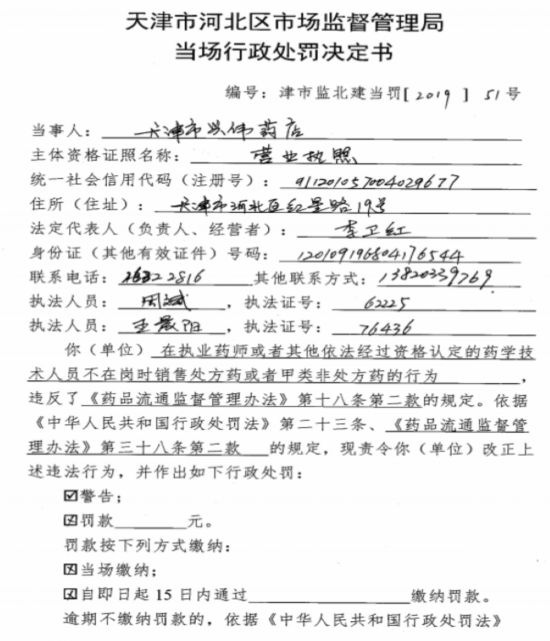 天津市河北区市场监督管理局
当场行政处罚决定书
编号：津市监北建当罚[2019]51号
当事人：天津市兴伟药店
主体资格证照名称：营业执照
统一社会信用代码（注册号）：911201057004029677
住所（住址）：天津市河北区红星路19号
法定代表人（负责人、经营者）：李卫红
身份证（其他有效证件）号码：120109196804176544
联系电话：26322816 其他联系方式：13820339769
执法人员：周斌，执法证号：62225
执法人员：王晨阳，执法证号：76436
你（单位）在执业药师或者其他依法经过资格认定的药学技
术人员不在岗时销售处方药或者甲类非处方药的行为，
违反了《药品流通监督管理办法》第十八条第二款的规定。依据
《中华人民共和国行政处罚法》第二十三条、《药品流通监督管
理办法》第三十八条第二款 的规定，现责令你（单位）改正上
述违法行为，并作出如下行政处罚：
☑警告；
☑罚款______元。
罚款按下列方式缴纳：
☑当场缴纳；
☑自即日起15日内通过____________缴纳罚款。
逾期不缴纳罚款的，依据《中华人民共和国行政处罚法》